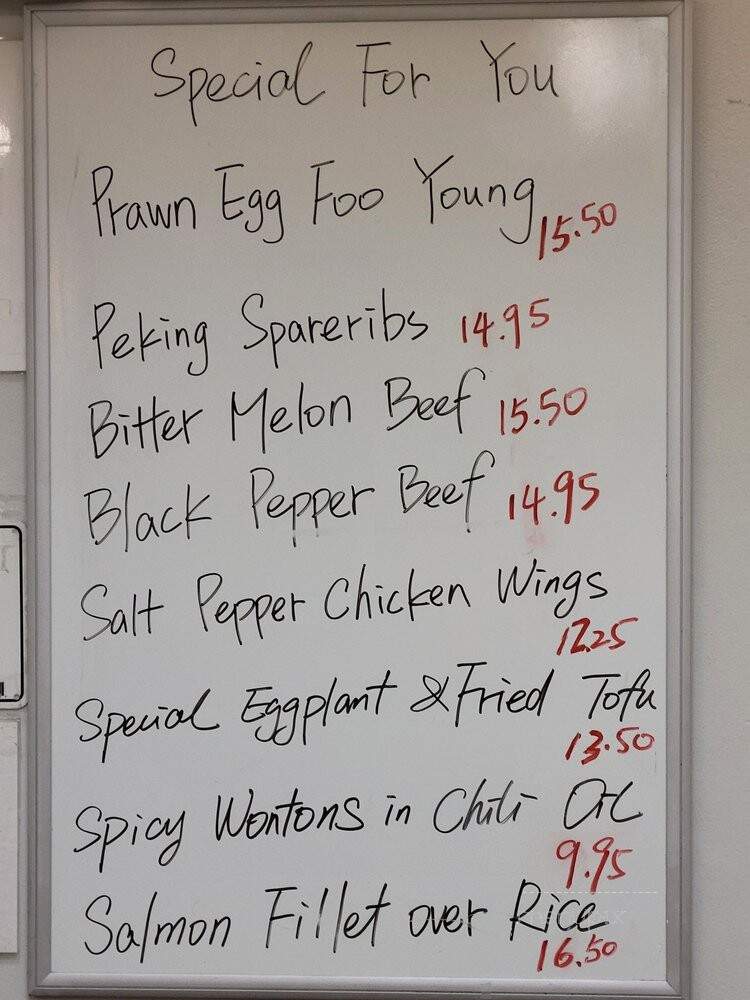 Special For You
Prawn Egg Foo Young 15.50
Peking Spareribs 14.95
Bitter Melon Beef 15.50
Black Pepper Beef 14.95
Salt Pepper Chicken Wings
12.25
Special Eggplant & Fried Tofu
13.50
Spicy Wontons in Chili Oil
9.95
Salmon Fillet over Rice
16.50